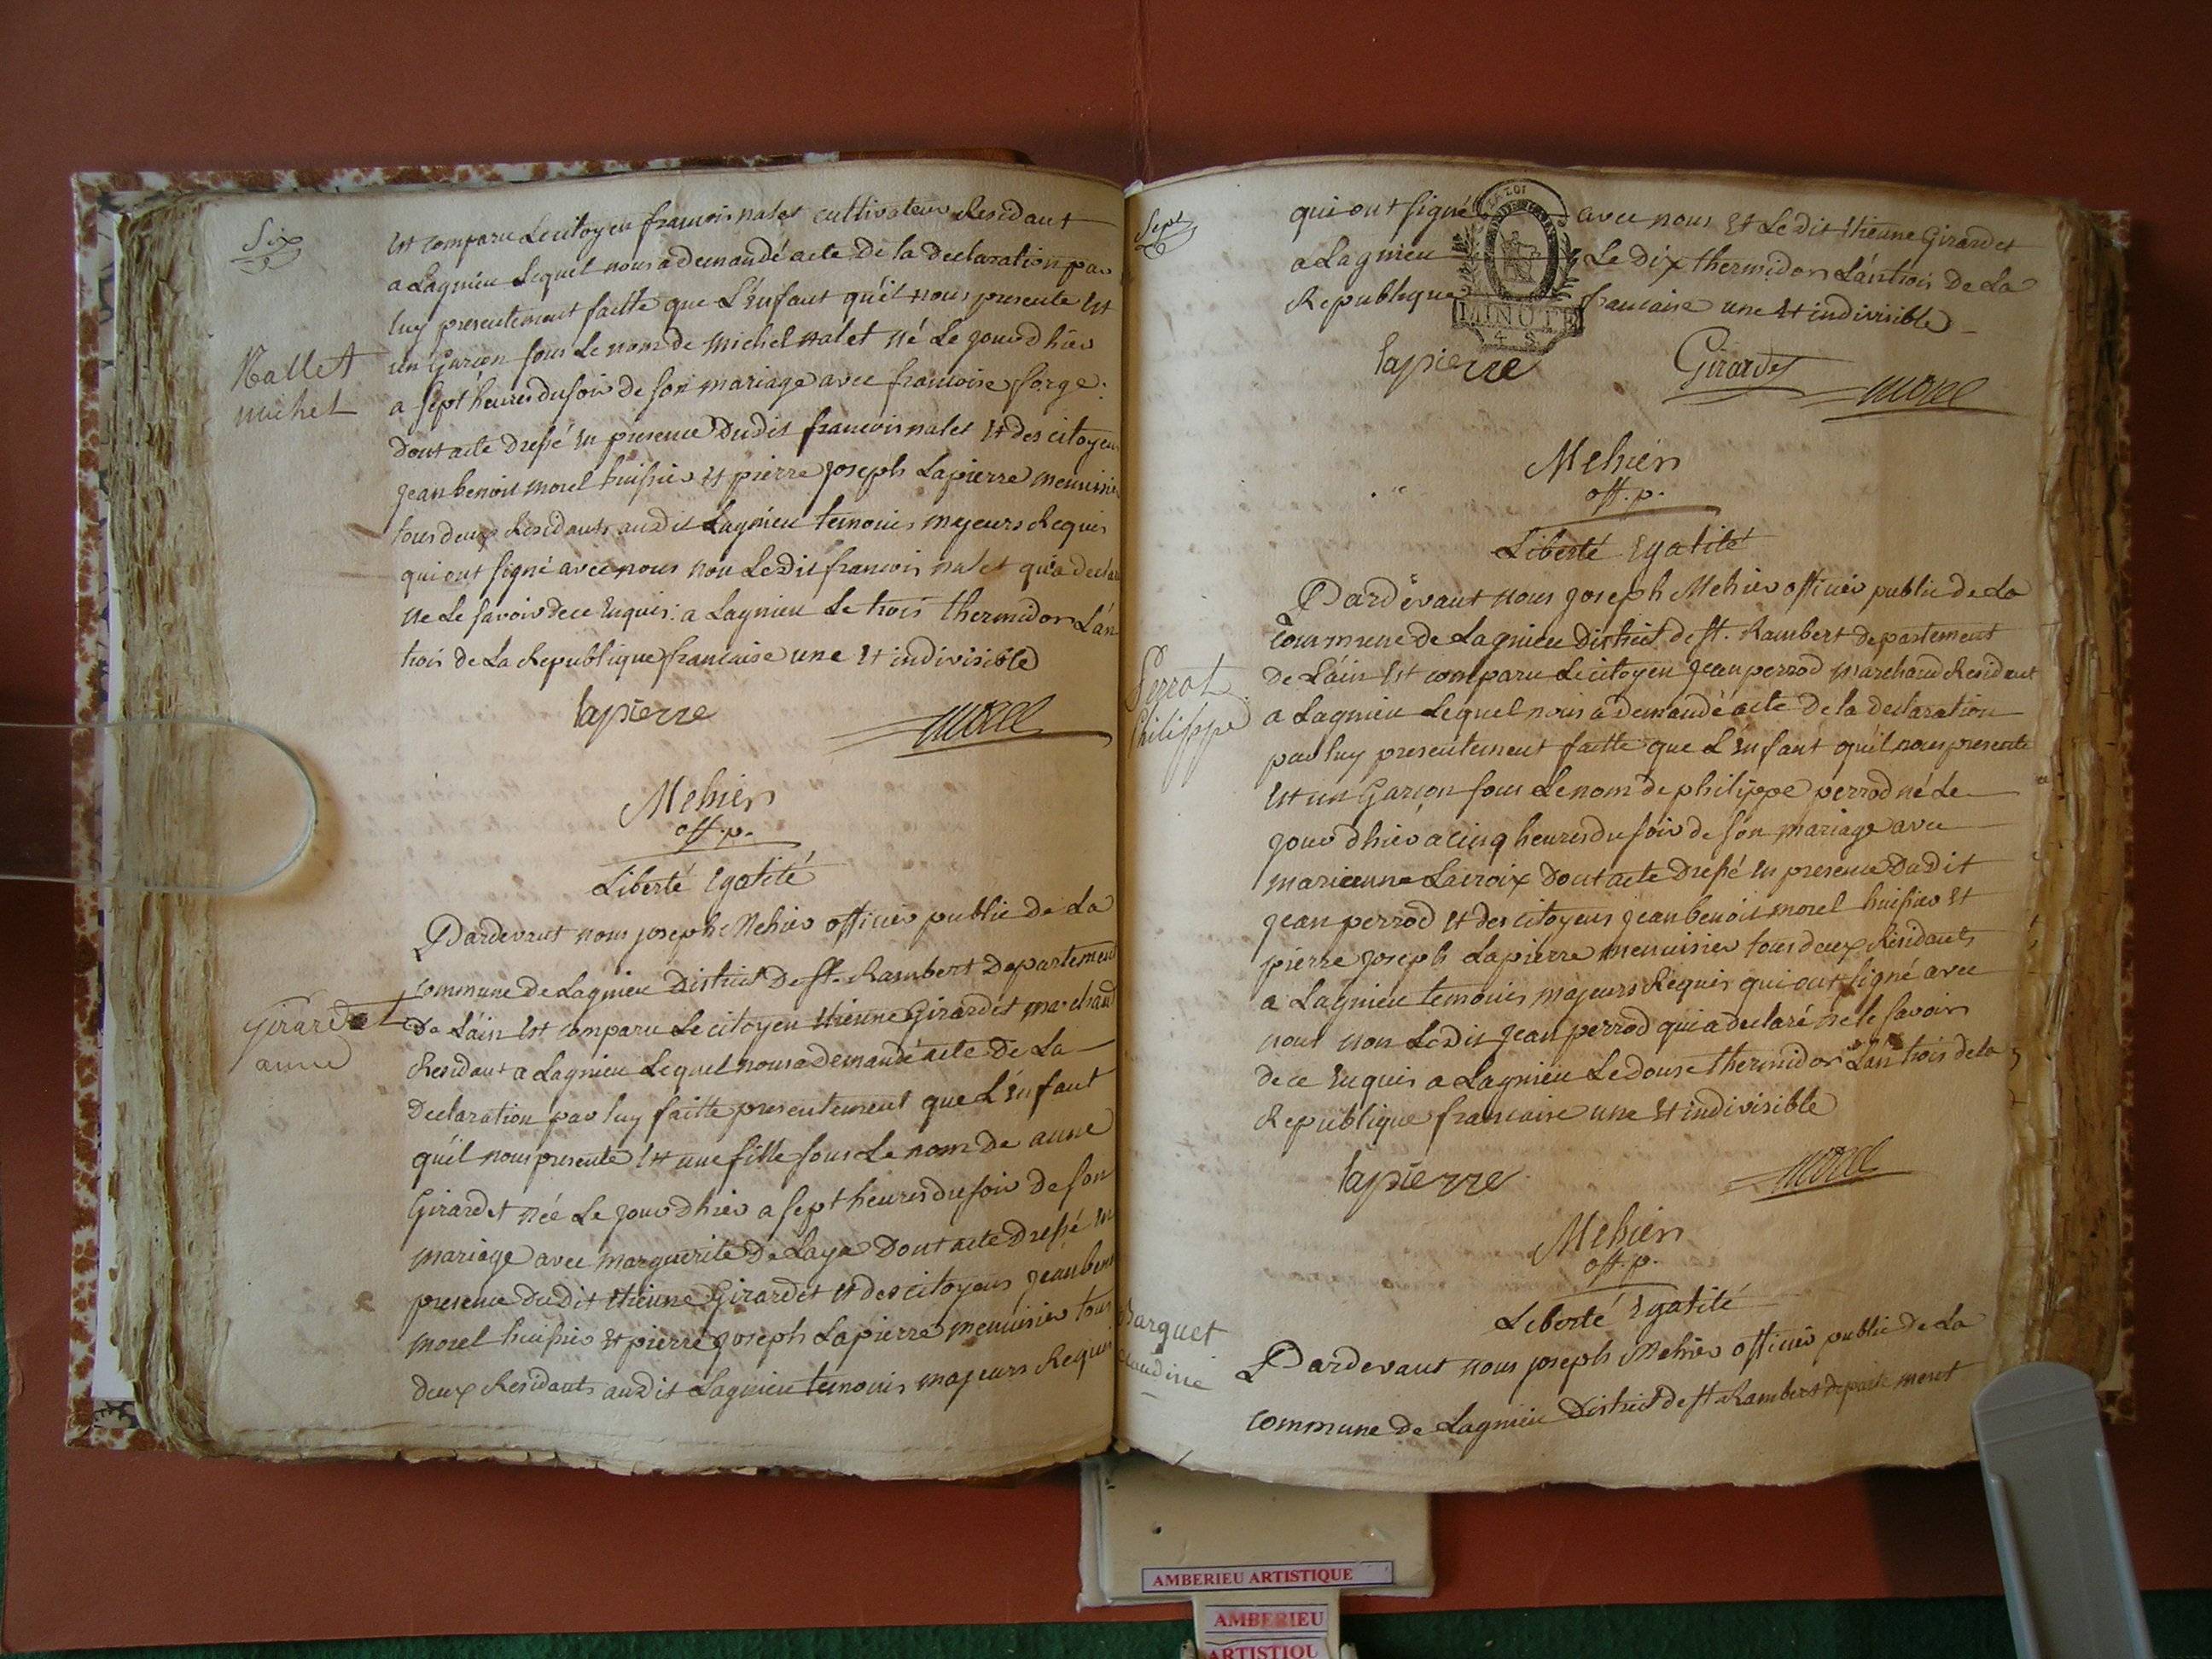 Six
Est comparu Le citoyen francois nalet cultivateur Residant
a Lagnieu Lequel nous a demandé acte de la declaration par
luy presentement faitte que L'enfant qu'il nous presente Est
un Garcon sous Le nom de michel nalet né Le jour d'hier
Nallet
michel
a sept heures du soir de son mariage avec francoise forge.
dont acte dressé En presence dudit francois nalet Et des citoyens
jean benoit morel huissier Et pierre joseph Lapierre menuisier
tous deux Residants audit Lagnieu temoins majeurs Requis
qui ont signé avec nous non Ledit francois nalet qui a declaré
ne Le savoir de ce Enquis. a Lagnieu Le trois thermidor L'an
trois de La Republique francaise une Et indivisible
lapierre
morel
Mehier
off. p.
Liberté Egalité
Pardevant nous joseph Mehier officier public de La
commune de Lagnieu District de st. Rambert Departement
girardet
anne
De L'ain Est comparu Le citoyen Etienne Girardet marchand
Residant a Lagnieu Lequel nous a demandé acte de La
Declaration par luy faitte presentement que L'Enfant
qu'il nous presente Est une fille sous Le nom de anne
Girardet née Le jour d'hier a sept heures du soir de son
mariage avec marguerite De Laya Dont acte Dressé En
presence dudit Etienne Girardet Et des citoyens jean benoit
morel huissier Et pierre joseph Lapierre menuisier tous
deux Residants audit Lagnieu temoins majeurs Requis
Sept
qui ont signé avec nous Et Ledit Etienne Girardet
a Lagnieu Le Dix thermidor L'an trois de La
Republique francaise une Et indivisible
LA LOI
MINUTE
4 S
lapierre
Girardet
morel
Mehier
off. p.
Liberté Egalité
Pardevant nous joseph Mehier officier public de La
Commune de Lagnieu District de st. Rambert departement
Perrot
Philippe
de L'ain Est comparu Le citoyen jean perrod marchand Residant
a Lagnieu Lequel nous a demandé acte de la declaration
par luy presentement faitte que L'Enfant qu'il nous presente
Est un Garcon sous Le nom de philippe perrod né Le
jour d'hier a cinq heures du soir de son mariage avec
marieanne Lacroix Dont acte Dressé En presence Dudit
jean perrod Et des citoyens jean benoit morel huissier Et
pierre joseph Lapierre menuisier tous deux Residants
a Lagnieu temoins majeurs Requis qui ont signé avec
nous non Ledit jean perrod qui a declaré ne le savoir
de ce Enquis a Lagnieu Le douse thermidor L'an trois de la
Republique francaise une Et indivisible
lapierre
morel
Mehier
off. p.
Liberté Egalité
Barquet
Claudine
Pardevant nous joseph Mehier officier public de La
commune de Lagnieu District de st Rambert departement
AMBERIEU ARTISTIQUE
AMBERIEU
ARTISTIQU